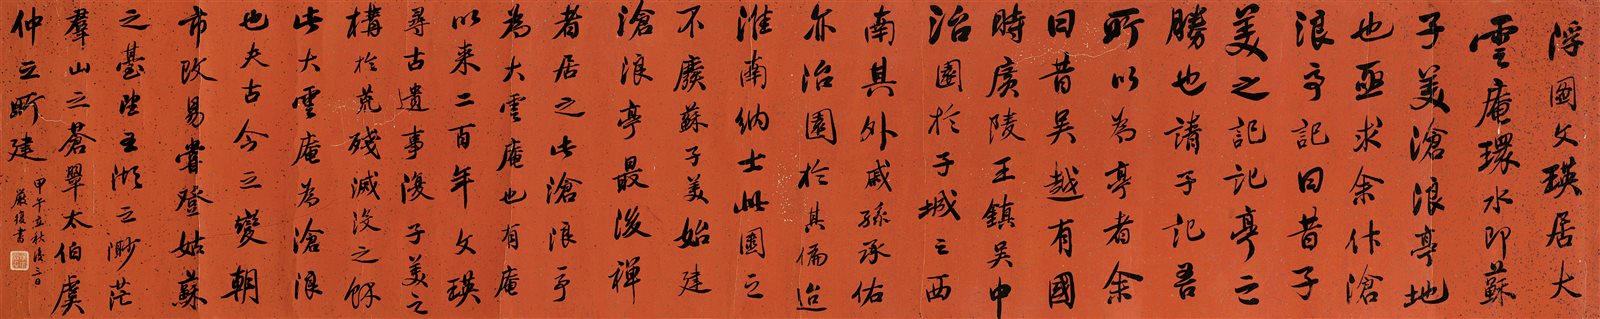 浮圖文瑛居大
雲庵環水即蘇
子美滄浪亭地
也亟求余作滄
浪亭記曰昔子
美之記記亭之
勝也請子記吾
所以為亭者余
曰昔吳越有國
時廣陵王鎮吳中
治園於子城之西
南其外戚孫承佑
亦治園於其偏迨
淮南納土此園之
不廢蘇子美始建
滄浪亭最後禪
者居之此滄浪亭
為大雲庵也有庵
以來二百年文瑛
尋古遺事復子美之
構於荒殘滅沒之餘
此大雲庵為滄浪
也夫古今之變朝
市改易嘗登姑蘇
之臺望五湖之渺茫
羣山之蒼翠太伯虞
仲之所建
甲午立秋後三日
嚴復書